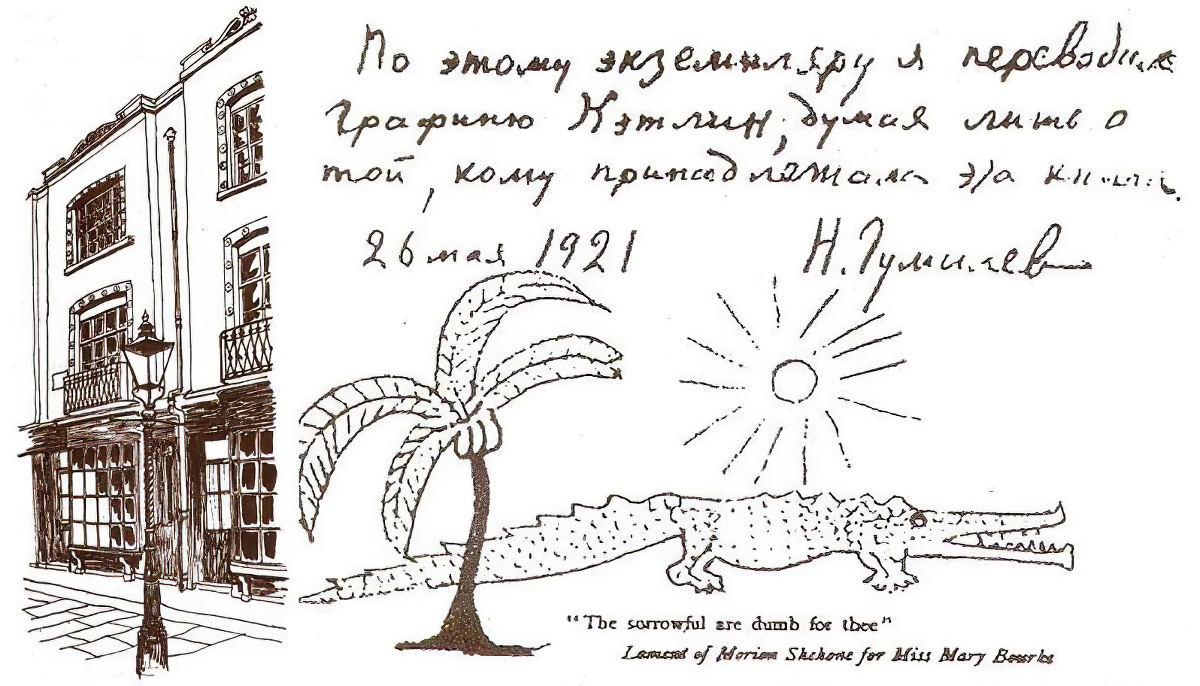 По этому экземпляру я переводил
графиню Кэтлин, думая лишь о
той, кому принадлежала эта книга.
26 мая 1921 Н. Гумилев
"The sorrowful are dumb for thee"
Lament of Morion Shehone for Miss Mary Bourke